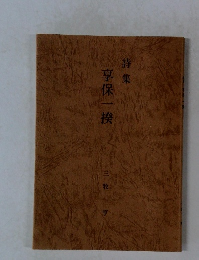 詩集
享保一揆